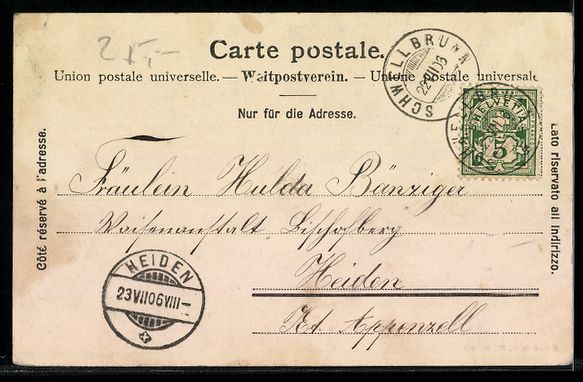 25,-
Carte postale.
Union postale universelle. — Weltpostverein. — Unione postale universale
Nur für die Adresse.
SCHWELLBRUNN
22.VII.06
HELVETIA
5
Côté réservé à l'adresse.
Lato riservato all indirizzo.
Fräulein Hulda Bänziger
Waisenanstalt Bischofberg
Heiden
Kt. Appenzell
HEIDEN
23.VII.06.VIII—